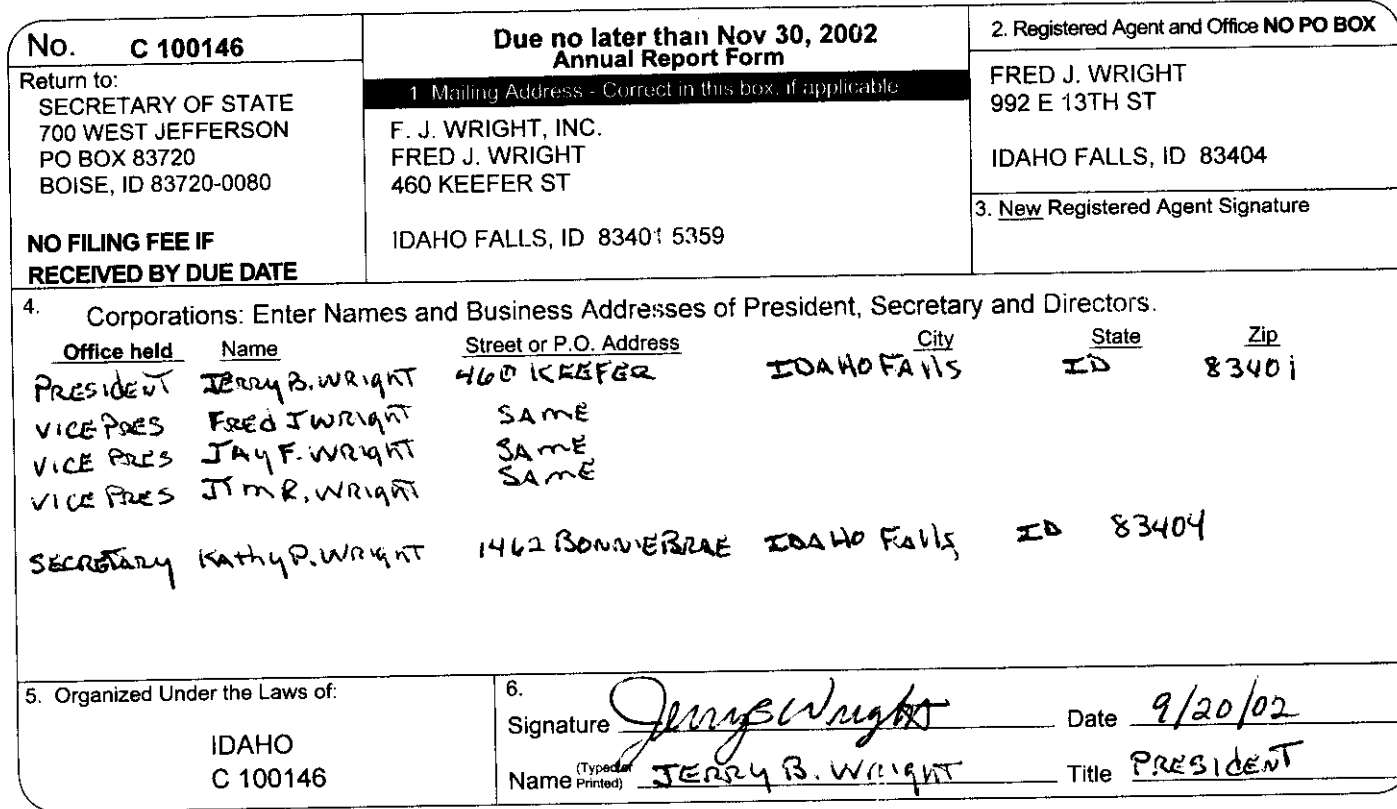 No. C 100146
Return to:
SECRETARY OF STATE
700 WEST JEFFERSON
PO BOX 83720
BOISE, ID 83720-0080
NO FILING FEE IF
RECEIVED BY DUE DATE
Due no later than Nov 30, 2002
Annual Report Form
1 Mailing Address - Correct in this box, if applicable
F. J. WRIGHT, INC.
FRED J. WRIGHT
460 KEEFER ST
IDAHO FALLS, ID 83401 5359
2. Registered Agent and Office NO PO BOX
FRED J. WRIGHT
992 E 13TH ST
IDAHO FALLS, ID 83404
3. New Registered Agent Signature
4. Corporations: Enter Names and Business Addresses of President, Secretary and Directors.
Office held Name Street or P.O. Address City State Zip
PRESIDENT JERRY B. WRIGHT 460 KEEFER IDAHO FAllS ID 83401
VICE PRES FREd J WRIGHT SAME
VICE PRES JAY F. WRIGHT SAME
VICE PRES JIM R. WRIGHT SAME
SECRETARY KAthy P. WRIGHT 1462 BONNIEBRAE IDAHO Falls ID 83404
5. Organized Under the Laws of:
IDAHO
C 100146
6.
Signature Jerry B Wright Date 9/20/02
Name (Typed or Printed) JERRY B. WRIGHT Title PRESIDENT